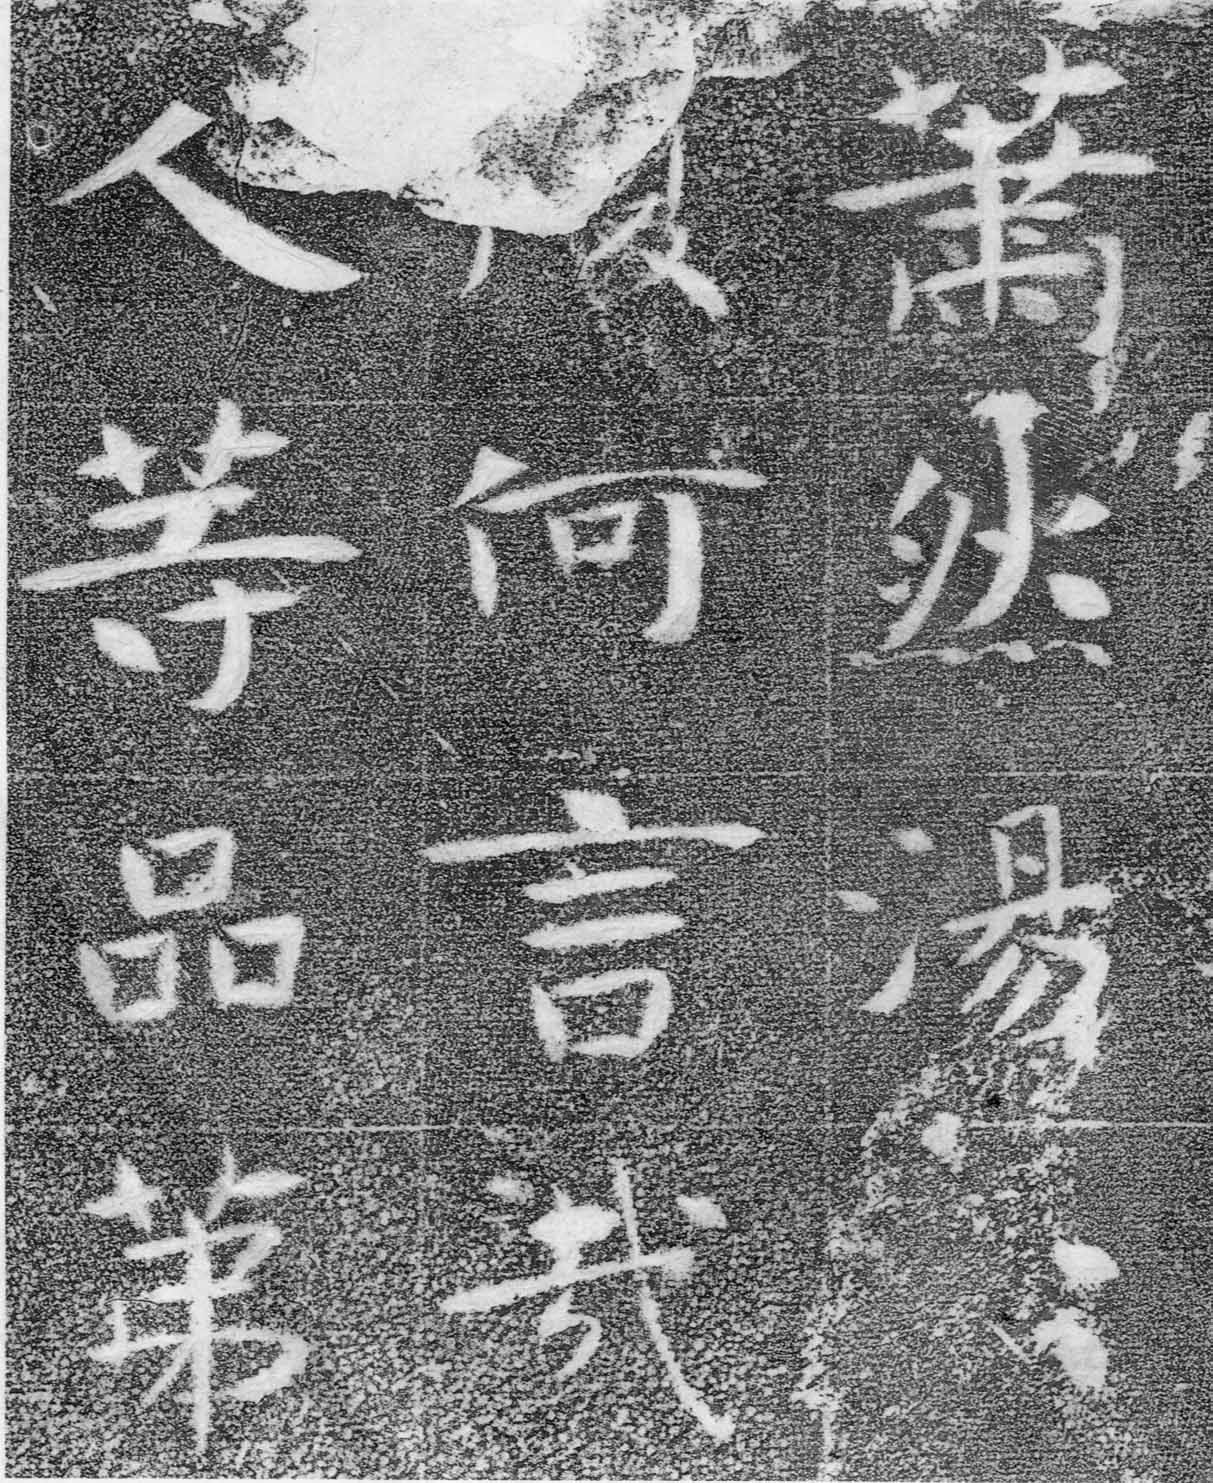 蕭然湯
何言哉
人等品第